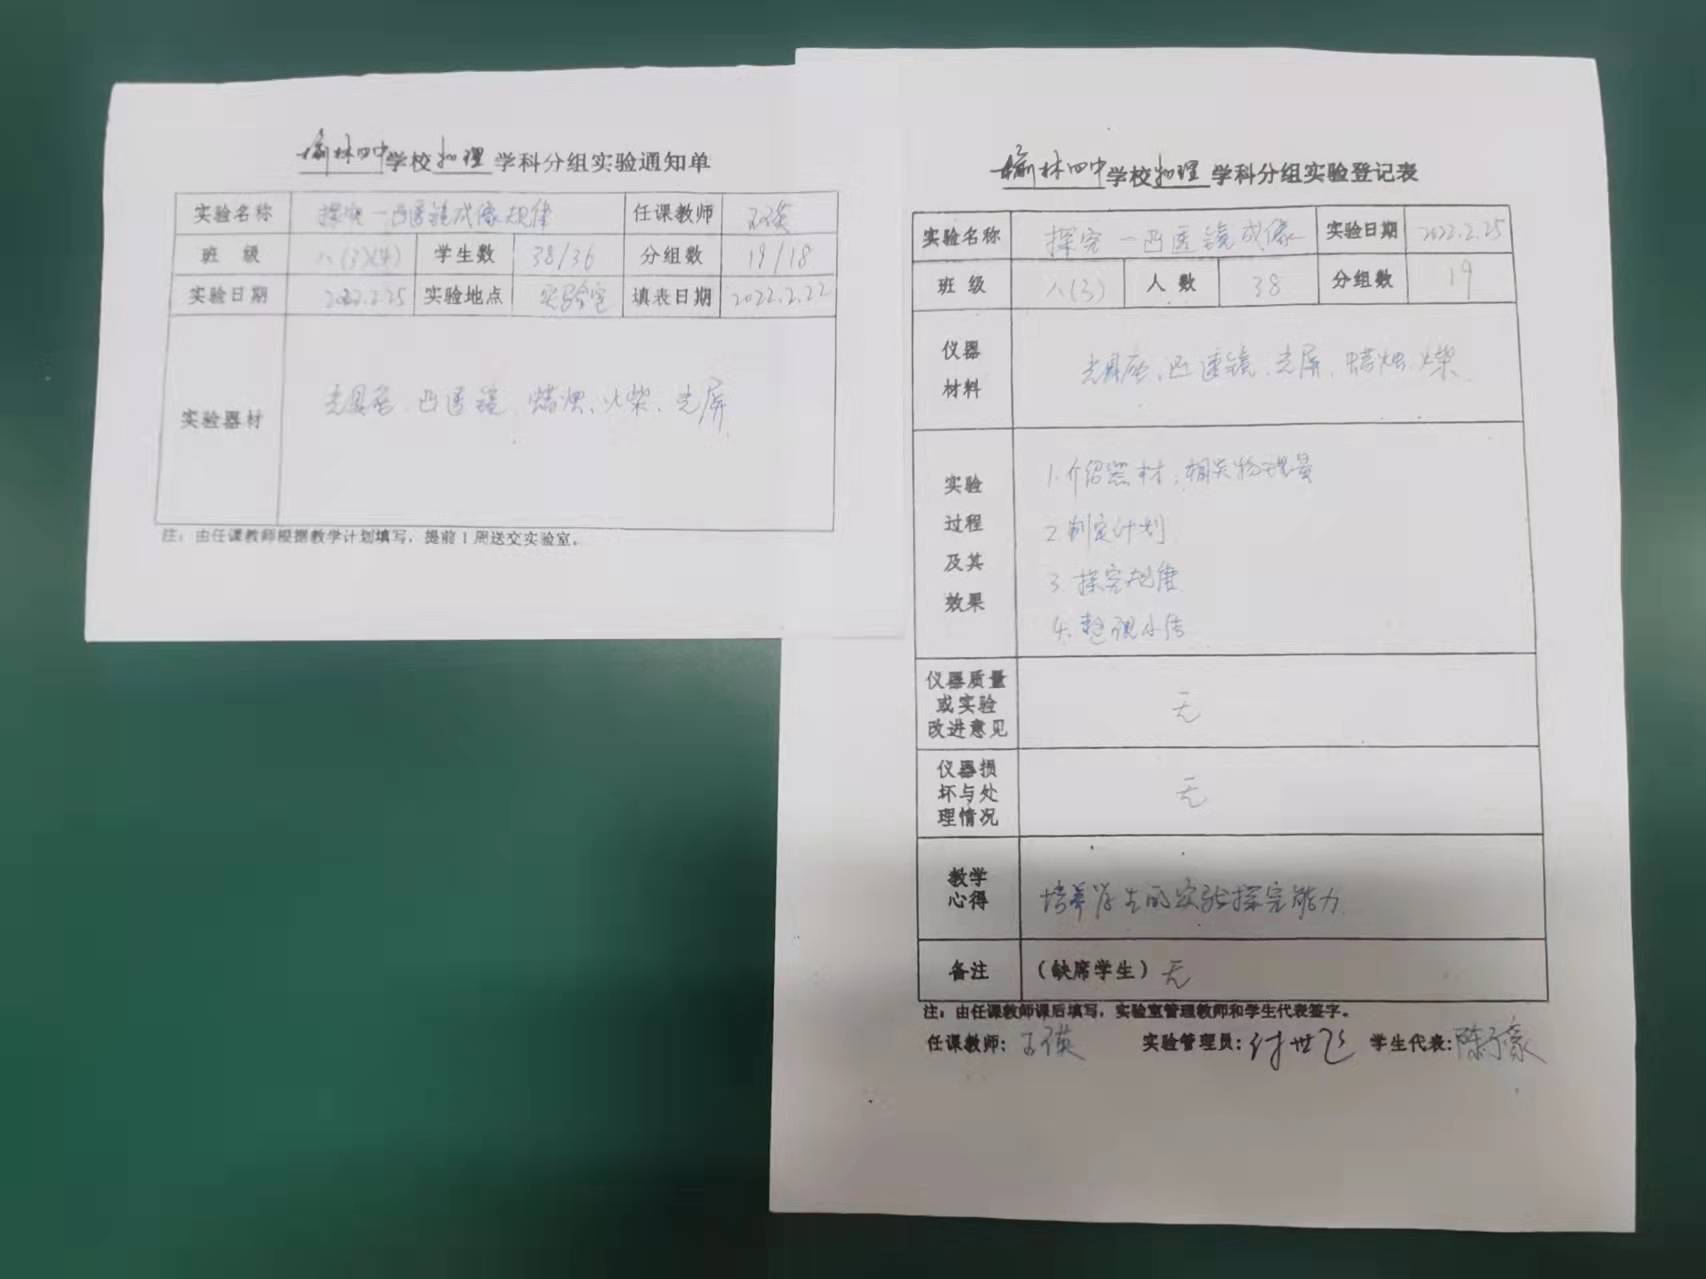 榆林四中学校物理学科分组实验通知单
实验名称 探究一凸透镜成像规律 任课教师
班 级 八(3)(4) 学生数 38/36 分组数 19/18
实验日期 2022.2.25 实验地点 实验室 填表日期 2022.2.22
实验器材 光具座、凸透镜、蜡烛、火柴、光屏
注:由任课教师根据教学计划填写,提前1周送交实验室。
榆林四中学校物理学科分组实验登记表
实验名称 探究一凸透镜成像 实验日期 2022.2.25
班 级 八(3) 人 数 38 分组数 19
仪器
材料
光具座、凸透镜、光屏、蜡烛、火柴
实验
过程
及其
效果
1.介绍器材,相关物理量
2.制定计划
3.探究规律
4.整理小结
仪器质量
或实验
改进意见
无
仪器损
坏与处
理情况
无
教学
心得
培养学生的实验探究能力
备注 (缺席学生)无
注:由任课教师课后填写,实验室管理教师和学生代表签字。
任课教师: 实验管理员:付世飞 学生代表:陈子豪